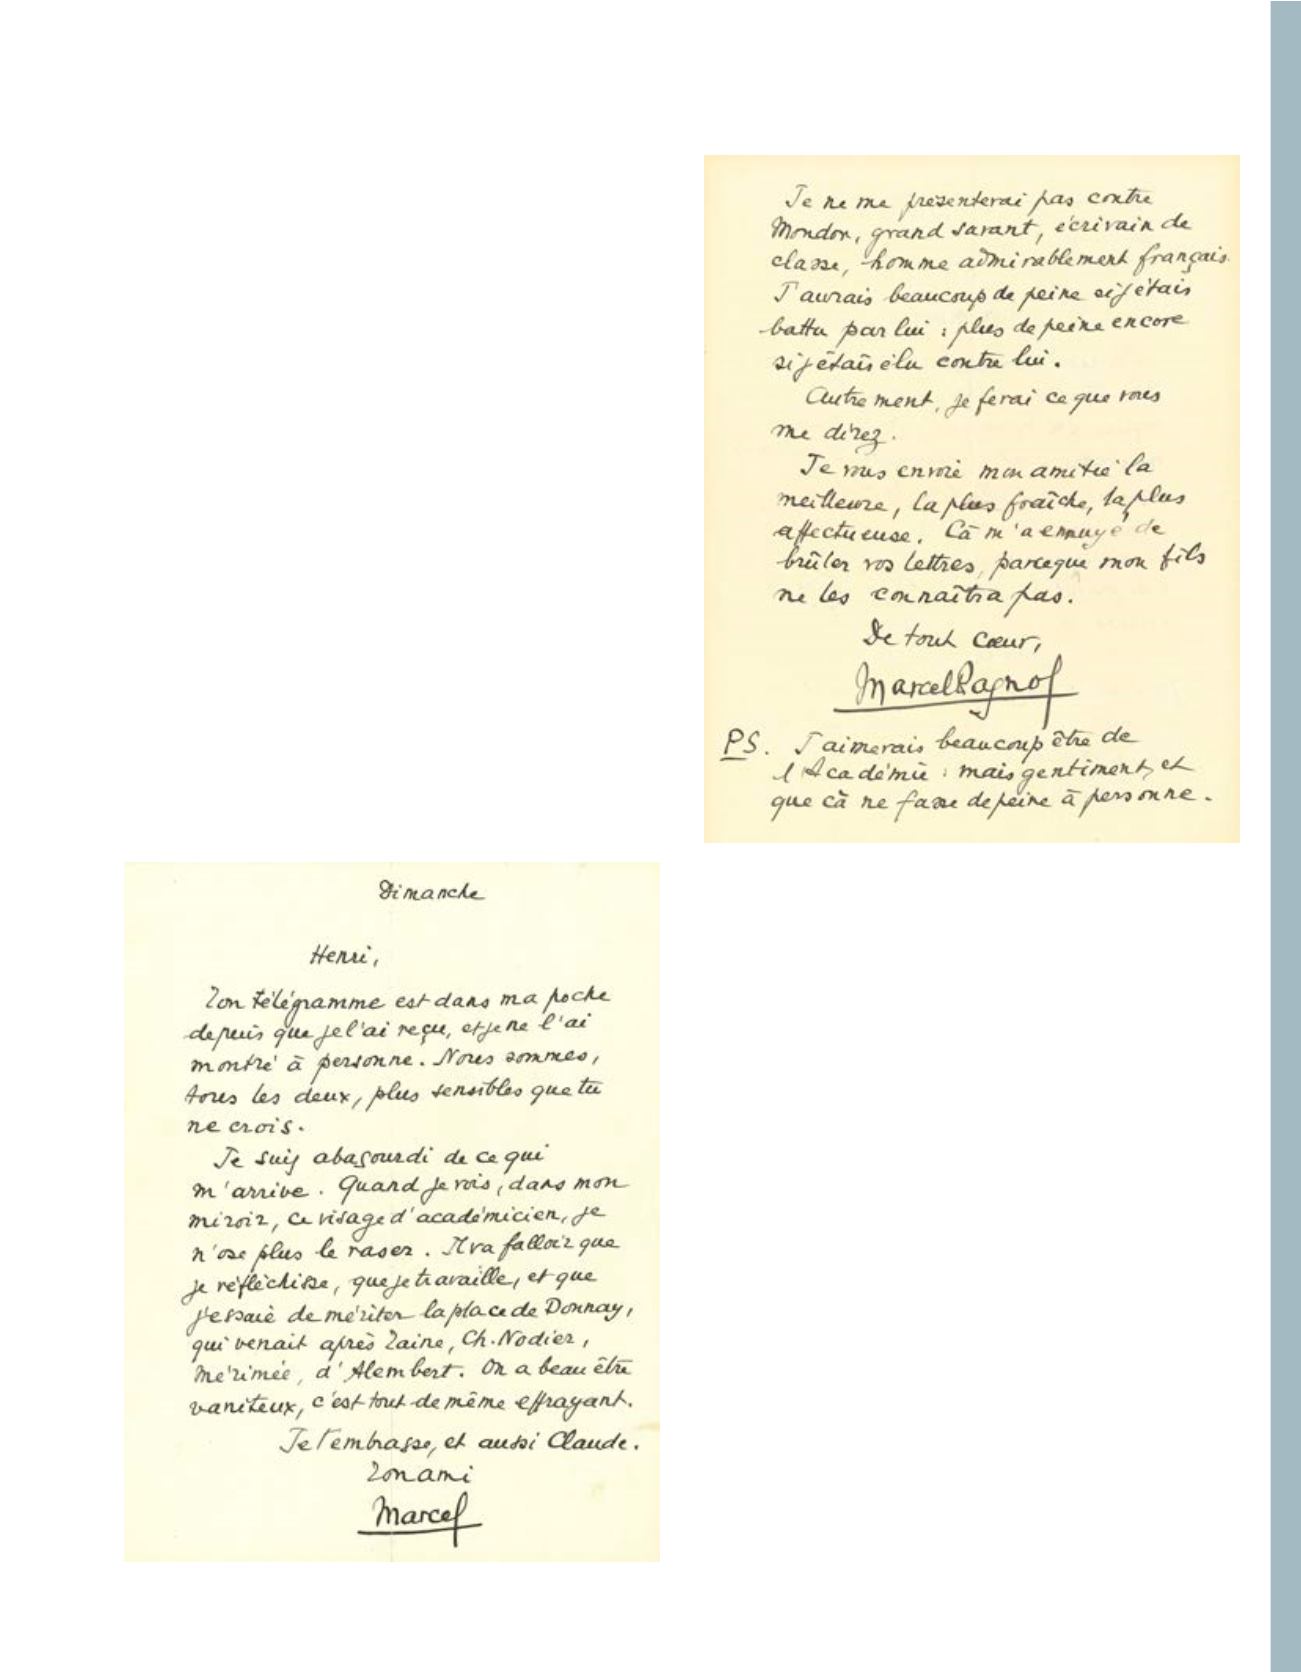 Je ne me présenterai pas contre
Mondor, grand savant, écrivain de
classe, homme admirablement français.
J'aurais beaucoup de peine si j'étais
battu par lui : plus de peine encore
si j'étais élu contre lui.
Autrement, je ferai ce que vous
me direz.
Je vous envoie mon amitié la
meilleure, la plus fraîche, la plus
affectueuse. Cà m'a ennuyé de
brûler vos lettres, parceque mon fils
ne les connaîtra pas.
De tout cœur,
Marcel Pagnol
PS. J'aimerais beaucoup être de
l'Académie : mais gentiment, et
que cà ne fasse de peine à personne.
Dimanche
Henri,
Ton télégramme est dans ma poche
depuis que je l'ai reçu, et je ne l'ai
montré à personne. Nous sommes,
tous les deux, plus sensibles que tu
ne crois.
Je suis abasourdi de ce qui
m'arrive. Quand je vois, dans mon
miroir, ce visage d'académicien, je
n'ose plus le raser. Il va falloir que
je réfléchisse, que je travaille, et que
j'essaie de mériter la place de Donnay,
qui venait après Taine, Ch. Nodier,
Mérimée, d'Alembert. On a beau être
vaniteux, c'est tout de même effrayant.
Je t'embrasse, et aussi Claude.
Ton ami
Marcel